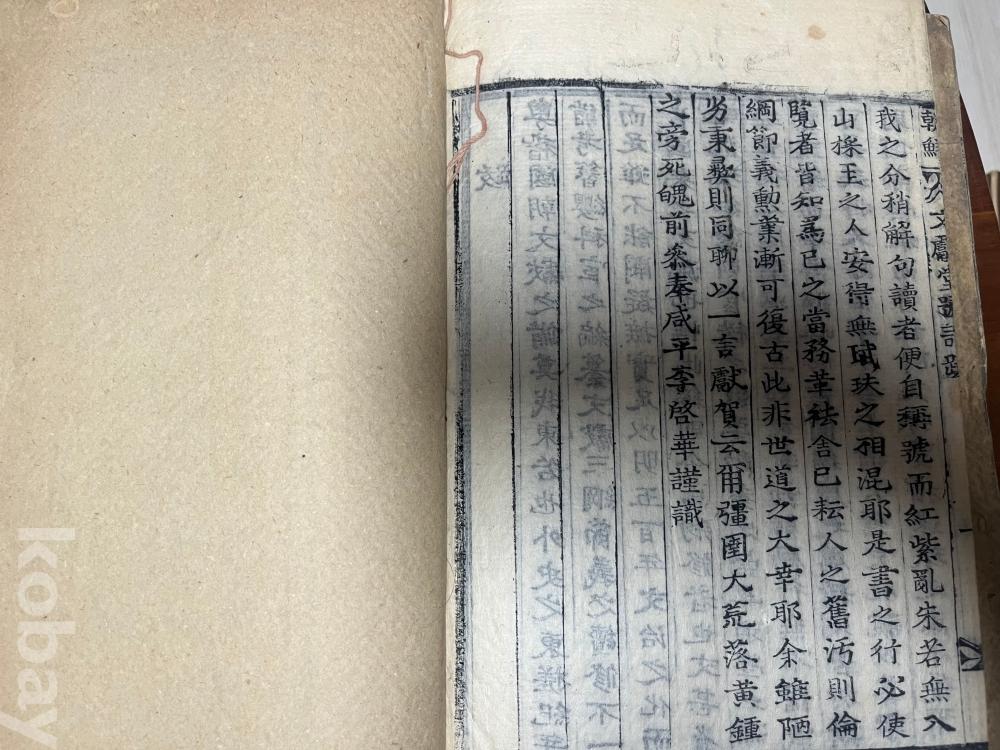 朝鮮 文獻堂號
一
我之分稍解句讀者便自稱號而紅紫亂朱若無入
山採玉之人安得無珷玞之相混耶是書之行必使
覽者皆知爲已之當務革祛舍已耘人之舊汚則倫
綱節義勳業漸可復古此非世道之大幸耶余雖陋
劣秉彝則同聊以一言獻賀云爾彊圉大荒落黃鍾
之旁死魄前叅奉咸平李啓華謹識
kobay